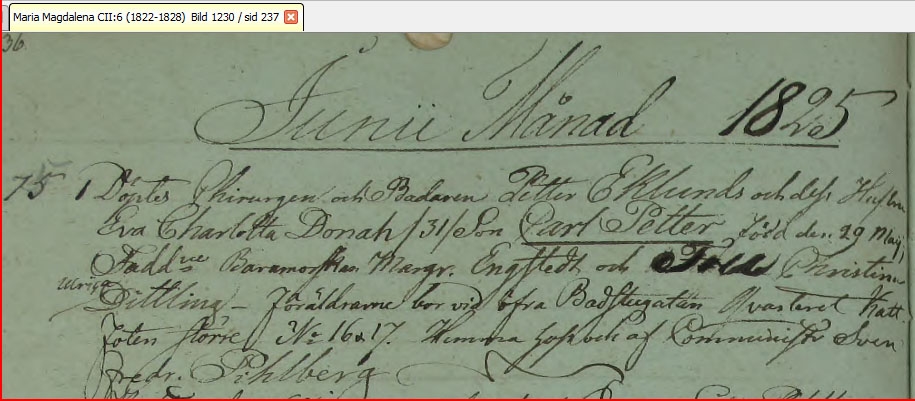 Maria Magdalena CII:6 (1822-1828) Bild 1230 / sid 237
36.
Junii Månad 1825
75 1 Döptes Chirurgen och Badaren Petter Eklunds och dess Hustru
Eva Charlotta Donah /31/ Son Carl Petter född den 29 Maij
Fadd Barnmorskan Margr. Engstedt och Christina
Ulrica
Dittling – Föräldrarne bor vid öfra Badstugatan Qvarteret Katt
foten större No 16 & 17. Hemma af Comminister Sven
Fredr. Pihlberg